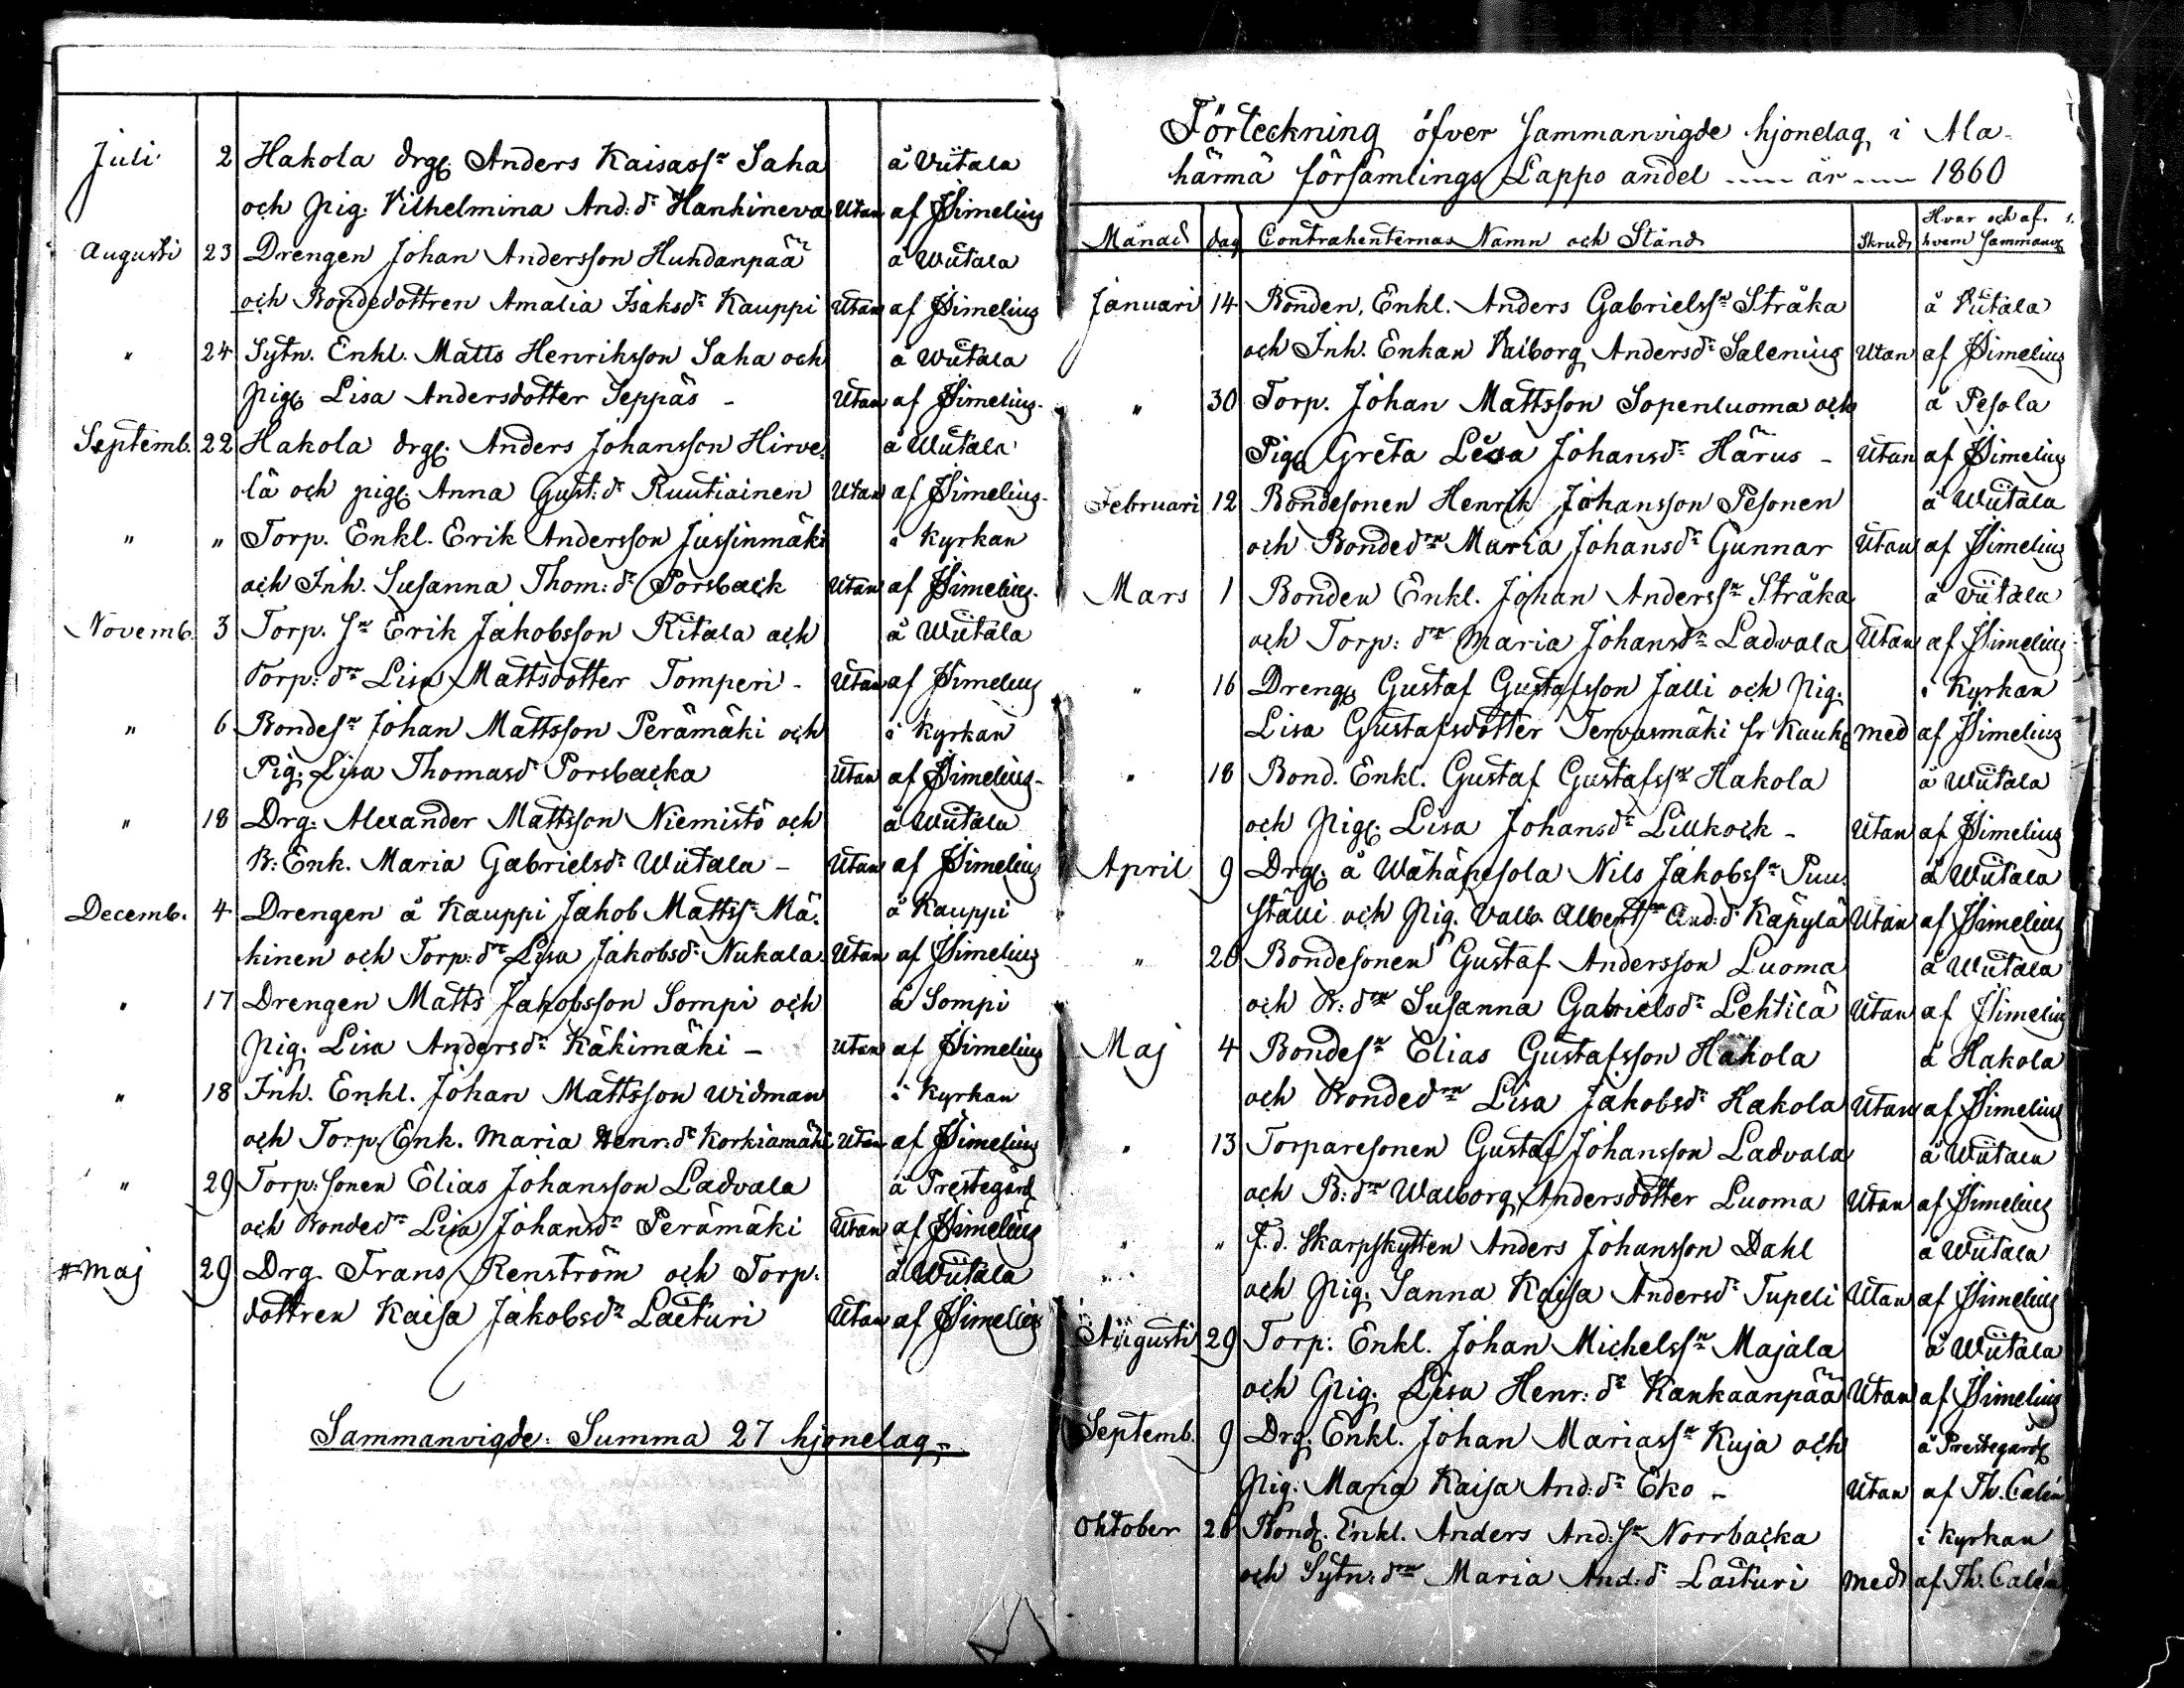 Juli 2 Hakola drg. Anders Kaisass:n Saha å Viitala
och pig. Vilhelmina And:dr Hanhineva Utan af JSimelius
Augusti 23 Drengen Johan Andersson Huhdanpää å Wiitala
och Bondedottren Amalia Isaksdr Kauppi Utan af JSimelius
" 24 Sytn. Enkl. Matts Henriksson Saha och å Wiitala
pig. Lisa Andersdotter Seppäs - Utan af JSimelius
Septemb. 22 Hakola drg. Anders Johansson Hirve- å Wiitala
lä och pig. Anna Gust:dr Ruutiainen Utan af JSimelius
" " Torp. Enkl. Erik Andersson Jussinmäki i Kyrkan
och Inh. Susanna Thom:dr Porsback Utan af JSimelius
Novemb. 3 Torp. sn Erik Jakobsson Ritala och å Wiitala
Torp:dr Lisa Mattsdotter Tomperi - Utan af JSimelius
" 6 Bondesn Johan Mattsson Perämäki och i Kyrkan
Pig. Lisa Thomasdr Porsbacka Utan af JSimelius
" 18 Drg. Alexander Mattsson Niemistö och å Wiitala
B: Enk. Maria Gabrielsdr Wiitala - Utan af JSimelius
Decemb. 4 Drengen å Kauppi Jakob Mattssn Mä- å Kauppi
kinen och Torp:dr Lisa Jakobsdr Nukala Utan af JSimelius
" 17 Drengen Matts Jakobsson Sompi och å Sompi
pig. Lisa Andersdr Käkimäki - Utan af JSimelius
" 18 Inh. Enkl. Johan Mattsson Widman i Kyrkan
och Torp. Enk. Maria Henr:dr Korkiamäki Utan af JSimelius
" 29 Torp:sonen Elias Johansson Ladvala å Prestegård
och Bondedrn Lisa Johansdr Perämäki Utan af JSimelius
# Maj 29 Drg. Frans Renström och Torp. å Wiitala
dottren Kaisa Jakobsdr Lasturi Utan af JSimelius
Sammanvigde: Summa 27 hjonelag.
Förteckning öfver Sammanvigde hjonelag i Ala-
härmä församlings Lappo andel ---- år ---- 1860
Månad dag Contrahenternas Namn och Stånd Skrud Hvar och af hvem Sammanvg
Januari 14 Bonden, Enkl. Anders Gabrielssn Stråka å Viitala
och Inh. Enkan Valborg Andersdr Salenius Utan af JSimelius
" 30 Torp. Johan Mattsson Sopenluoma och å Pesola
Pig. Greta Lisa Johansdr Härus - Utan af JSimelius
Februari 12 Bondesonen Henrik Johansson Pesonen å Wiitala
och Bondedrn Maria Johansdr Gunnar Utan af JSimelius
Mars 1 Bonden Enkl. Johan Anderssn Stråka å Viitala
och Torp: drn Maria Johansdr Ladvala Utan af JSimelius
" 16 Dreng. Gustaf Gustafsson Jalli och pig. i Kyrkan
Lisa Gustafsdotter Tervasmäki fr Kauh. med af JSimelius
" 18 Bond. Enkl. Gustaf Gustafssn Hakola å Wiitala
och pig. Lisa Johansdr Lillkock - Utan af JSimelius
April 9 Drg. å Wähäpesola Nils Jakobssn Puu- å Wiitala
ställi och pig. Valb. And:dr Käpylä Utan af JSimelius
" 20 Bondesonen Gustaf Andersson Luoma å Wiitala
och B:drn Susanna Gabrielsdr Lehtilä Utan af JSimelius
Maj 4 Bondesn Elias Gustafsson Hakola å Hakola
och Bondedrn Lisa Jakobsdr Hakola Utan af JSimelius
" 13 Torparesonen Gustaf Johansson Ladvala å Wiitala
och B:drn Walborg Andersdotter Luoma Utan af JSimelius
" " F.d. Skarpskytten Anders Johansson Dahl å Wiitala
och pig. Sanna Kaisa Andersdr Tupeli Utan af JSimelius
Augusti 29 Torp: Enkl. Johan Michelssn Majala å Wiitala
och pig. Lisa Henr:dr Kankaanpää Utan af JSimelius
Septemb. 9 Drg. Enkl. Johan Mariassn Kuja och å Prestegård
pig. Maria Kaisa And:dr Eko - Utan af Th. Calén
Oktober 28 Bond. Enkl. Anders And:sn Norrbacka i Kyrkan
och Sytn:drn Maria And:dr Lasturi med af Th. Calén